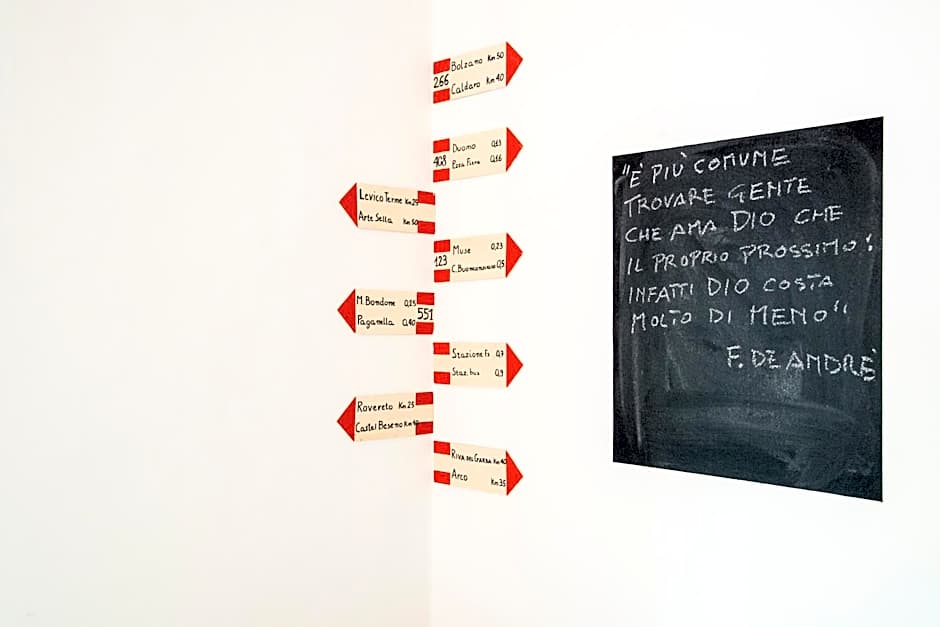 266
Bolzano Km 50
Caldaro Km 40
Duomo 0,13
0,16
Levico Terme Km 25
Arte Sella Km 50
123
Muse 0,23
C. Buonconsiglio 0,5
551
M. Bondone 0,25
Paganella 0,40
Stazione Fs 0,7
Staz. bus 0,9
Rovereto Km 25
Castel Beseno Km
Riva del Garda Km 40
Arco Km 35
"È PIÙ COMUNE
TROVARE GENTE
CHE AMA DIO CHE
IL PROPRIO PROSSIMO!
INFATTI DIO COSTA
MOLTO DI MENO"
F. DE ANDRÈ